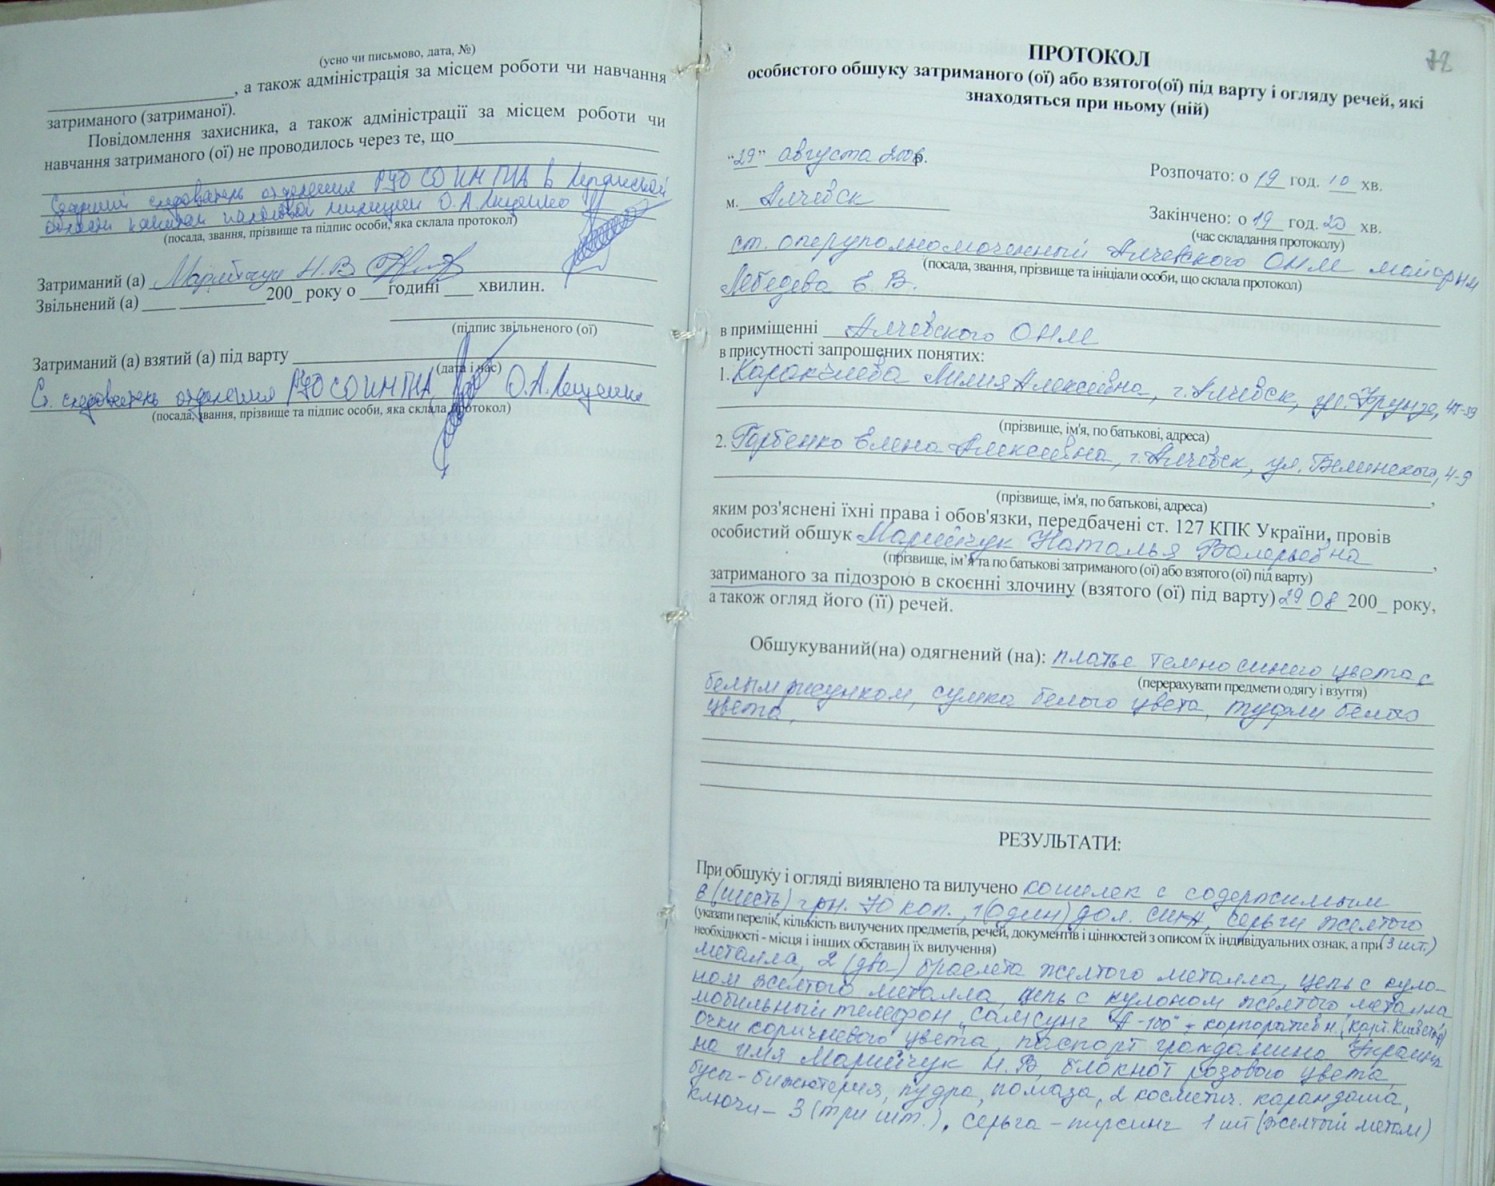 (усно чи письмово, дата, №)
, а також адміністрація за місцем роботи чи навчання
затриманого (затриманої).
Повідомлення захисника, а також адміністрації за місцем роботи чи
навчання затриманого (ої) не проводилось через те, що
Старший следователь отделения РУО СО ИМ ПНА в Луганской
области капитан налоговой милиции О.А. Лященко
(посада, звання, прізвище та підпис особи, яка склала протокол)
Затриманий (а) Марийчук Н.В.
Звільнений (а) 200_ року о ___годині ___ хвилин.
(підпис звільненого (ої)
Затриманий (а) взятий (а) під варту
(дата і час)
Ст. следователь отделения О.А. Лященко
(посада, звання, прізвище та підпис особи, яка склала протокол)
72
ПРОТОКОЛ
особистого обшуку затриманого (ої) або взятого(ої) під варту і огляду речей, які
знаходяться при ньому (ній)
"29" августа 2006р.
Розпочато: о 19 год. 10 хв.
м. Алчевск
Закінчено: о 19 год. 20 хв.
(час складання протоколу)
ст. оперуполномоченный Алчевского ОНМ майор нм
(посада, звання, прізвище та ініціали особи, що склала протокол)
Лебедева Е. В.
в приміщенні Алчевского ОНМ
в присутності запрошених понятих:
1. Лилия Алексеевна, г. Алчевск, ул. Фрунзе,
(прізвище, ім'я, по батькові, адреса)
2. Горбенко Елена Алексеевна, г. Алчевск, ул. Белинского, 4-9
(прізвище, ім'я, по батькові, адреса)
яким роз'яснені їхні права і обов'язки, передбачені ст. 127 КПК України, провів
особистий обшук Марийчук Наталья Валерьевна
(прізвище, ім'я та по батькові затриманого (ої) або взятого (ої) під варту)
затриманого за підозрою в скоєнні злочину (взятого (ої) під варту) 29 08 200_ року,
а також огляд його (її) речей.
Обшукуваний(на) одягнений (на): платье темно синего цвета с
(перерахувати предмети одягу і взуття)
белым рисунком, сумка белого цвета, туфли белого
цвета.
РЕЗУЛЬТАТИ:
При обшуку і огляді виявлено та вилучено кошелек с содержимым
6 (шесть) грн. 70 коп., 1 (один) дол. США, серьги желтого
(указати перелік, кількість вилучених предметів, речей, документів і цінностей з описом їх індивідуальних ознак, а при (3 шт.)
необхідності - місця і інших обставин їх вилучення)
металла, 2 (два) браслета желтого металла, цепь с куло-
ном желтого металла, цепь с кулоном желтого металла
мобильный телефон "Самсунг А-100"
очки коричневого цвета, паспорт гражданина Украины
на имя Марийчук Н.В., блокнот розового цвета,
бусы-бижютерия, пудра, помада, 2 косметич. карандаша,
ключи - 3 (три шт.), серьга - пирсинг 1 шт (желтый метал)